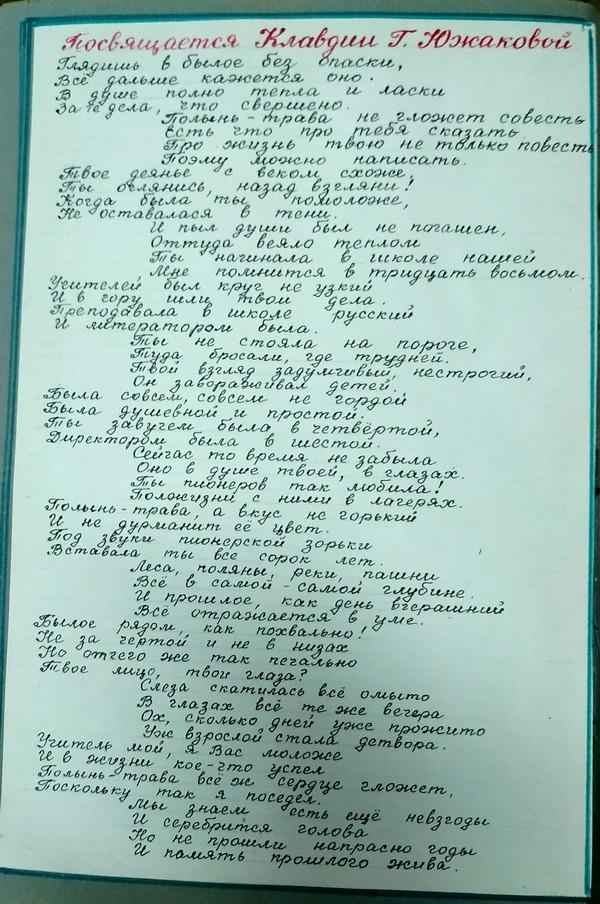 Посвящается Клавдии Г. Южаковой
Глядишь в былое без опаски,
Всё дальше кажется оно.
В душе полно тепла и ласки
За те дела, что свершено.
Полынь-трава не гложет совесть
Есть что про тебя сказать
Про жизнь твою не только повесть
Поэму можно написать.
Твое деянье с веком схоже,
Ты оглянись, назад взгляни!
Когда была ты помоложе,
Не оставалася в тени.
И пыл души был не погашен,
Оттуда веяло теплом
Ты начинала в школе нашей
Мне помнится в тридцать восьмом.
Учителей был круг не узкий
И в гору шли твои дела.
Преподавала в школе русский
И литератором была.
Ты не стояла на пороге,
Туда бросали, где трудней.
Твой взгляд задумчивый, нестрогий,
Он завораживал детей.
Была совсем, совсем не гордой
Была душевной и простой.
Ты завучем была в четвёртой,
Директором была в шестой.
Сейчас то время не забыла
Оно в душе твоей, в глазах.
Ты пионеров так любила!
Полжизни с ними в лагерях.
Полынь-трава, а вкус не горький
И не дурманит её цвет.
Под звуки пионерской зорьки
Вставала ты все сорок лет.
Леса, поляны, реки, пашни
Всё в самой-самой глубине.
И прошлое, как день вчерашний
Всё отражается в уме.
Былое рядом, как похвально!
Не за чертой и не в низах
Но отчего же так печально
Твое лицо, твои глаза?
Слеза скатилась всё омыто
В глазах всё те же вечера
Ох, сколько дней уже прожито
Уж взрослой стала детвора.
Учитель мой, я Вас моложе
И в жизни кое-что успел
Полынь-трава всё ж сердце гложет,
Поскольку так я поседел.
Мы знаем есть ещё невзгоды
И серебрится голова
Но не прошли напрасно годы
И память прошлого жива.